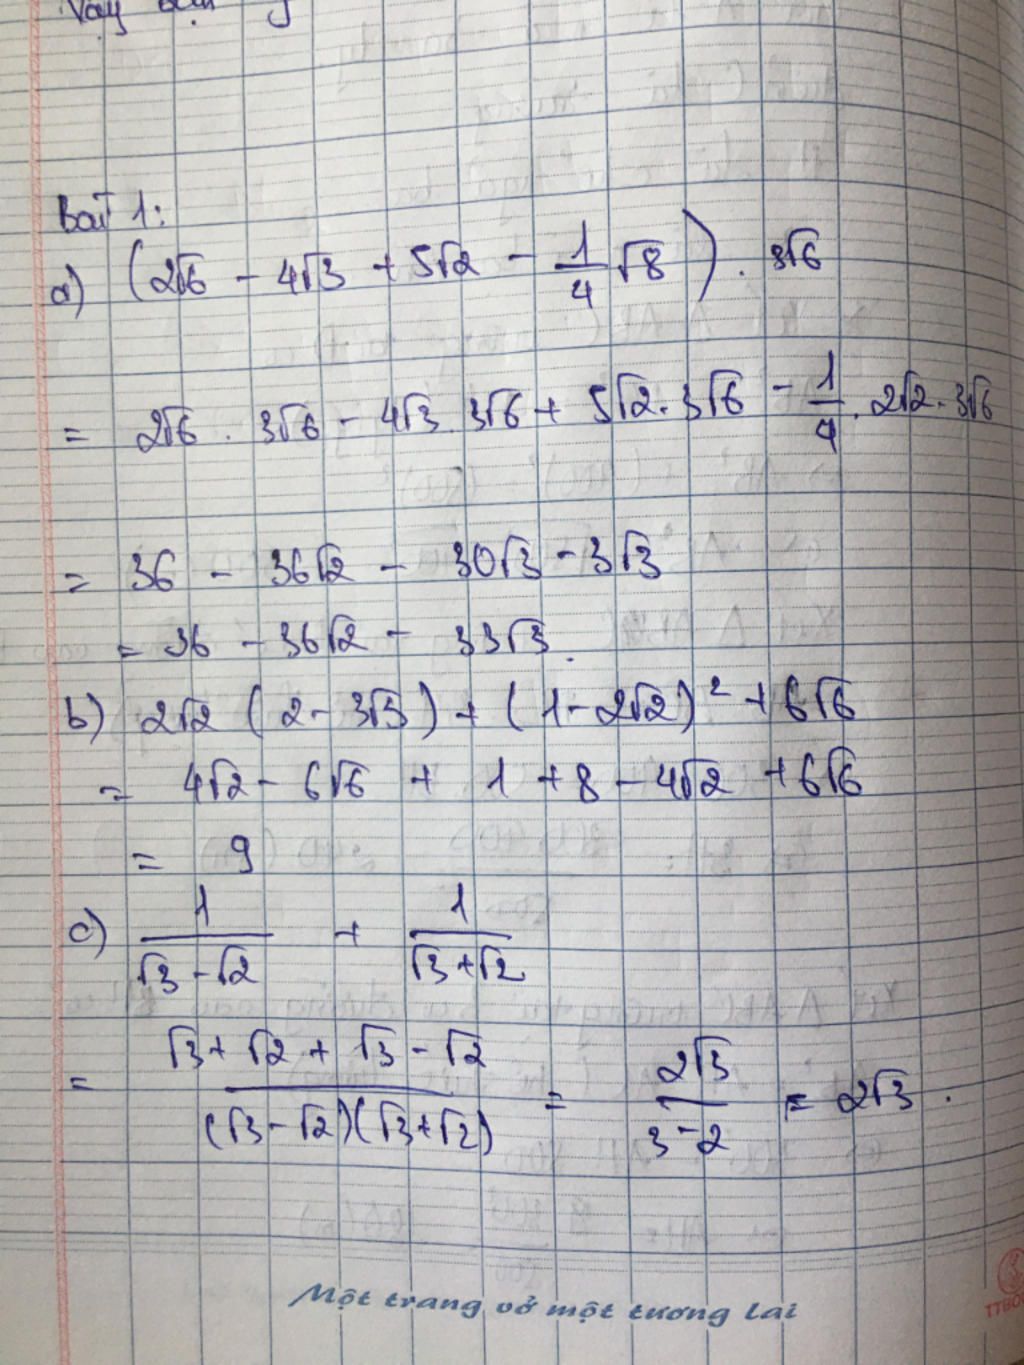 Vậy
Bài 1:
a) (2√6 - 4√3 + 5√2 - 1/4 √8) . 3√6
= 2√6 . 3√6 - 4√3 . 3√6 + 5√2 . 3√6 - 1/4 . 2√2 . 3√6
= 36 - 36√2 - 30√3 - 3√3
= 36 - 36√2 - 33√3.
b) 2√2 (2 - 3√3) + (1 - 2√2)² + 6√6
= 4√2 - 6√6 + 1 + 8 - 4√2 + 6√6
= 9
c) 1/(√3 - √2) + 1/(√3 + √2)
= (√3 + √2 + √3 - √2)/((√3 - √2)(√3 + √2)) = 2√3/(3 - 2) = 2√3.
Một trang vở một tương lai